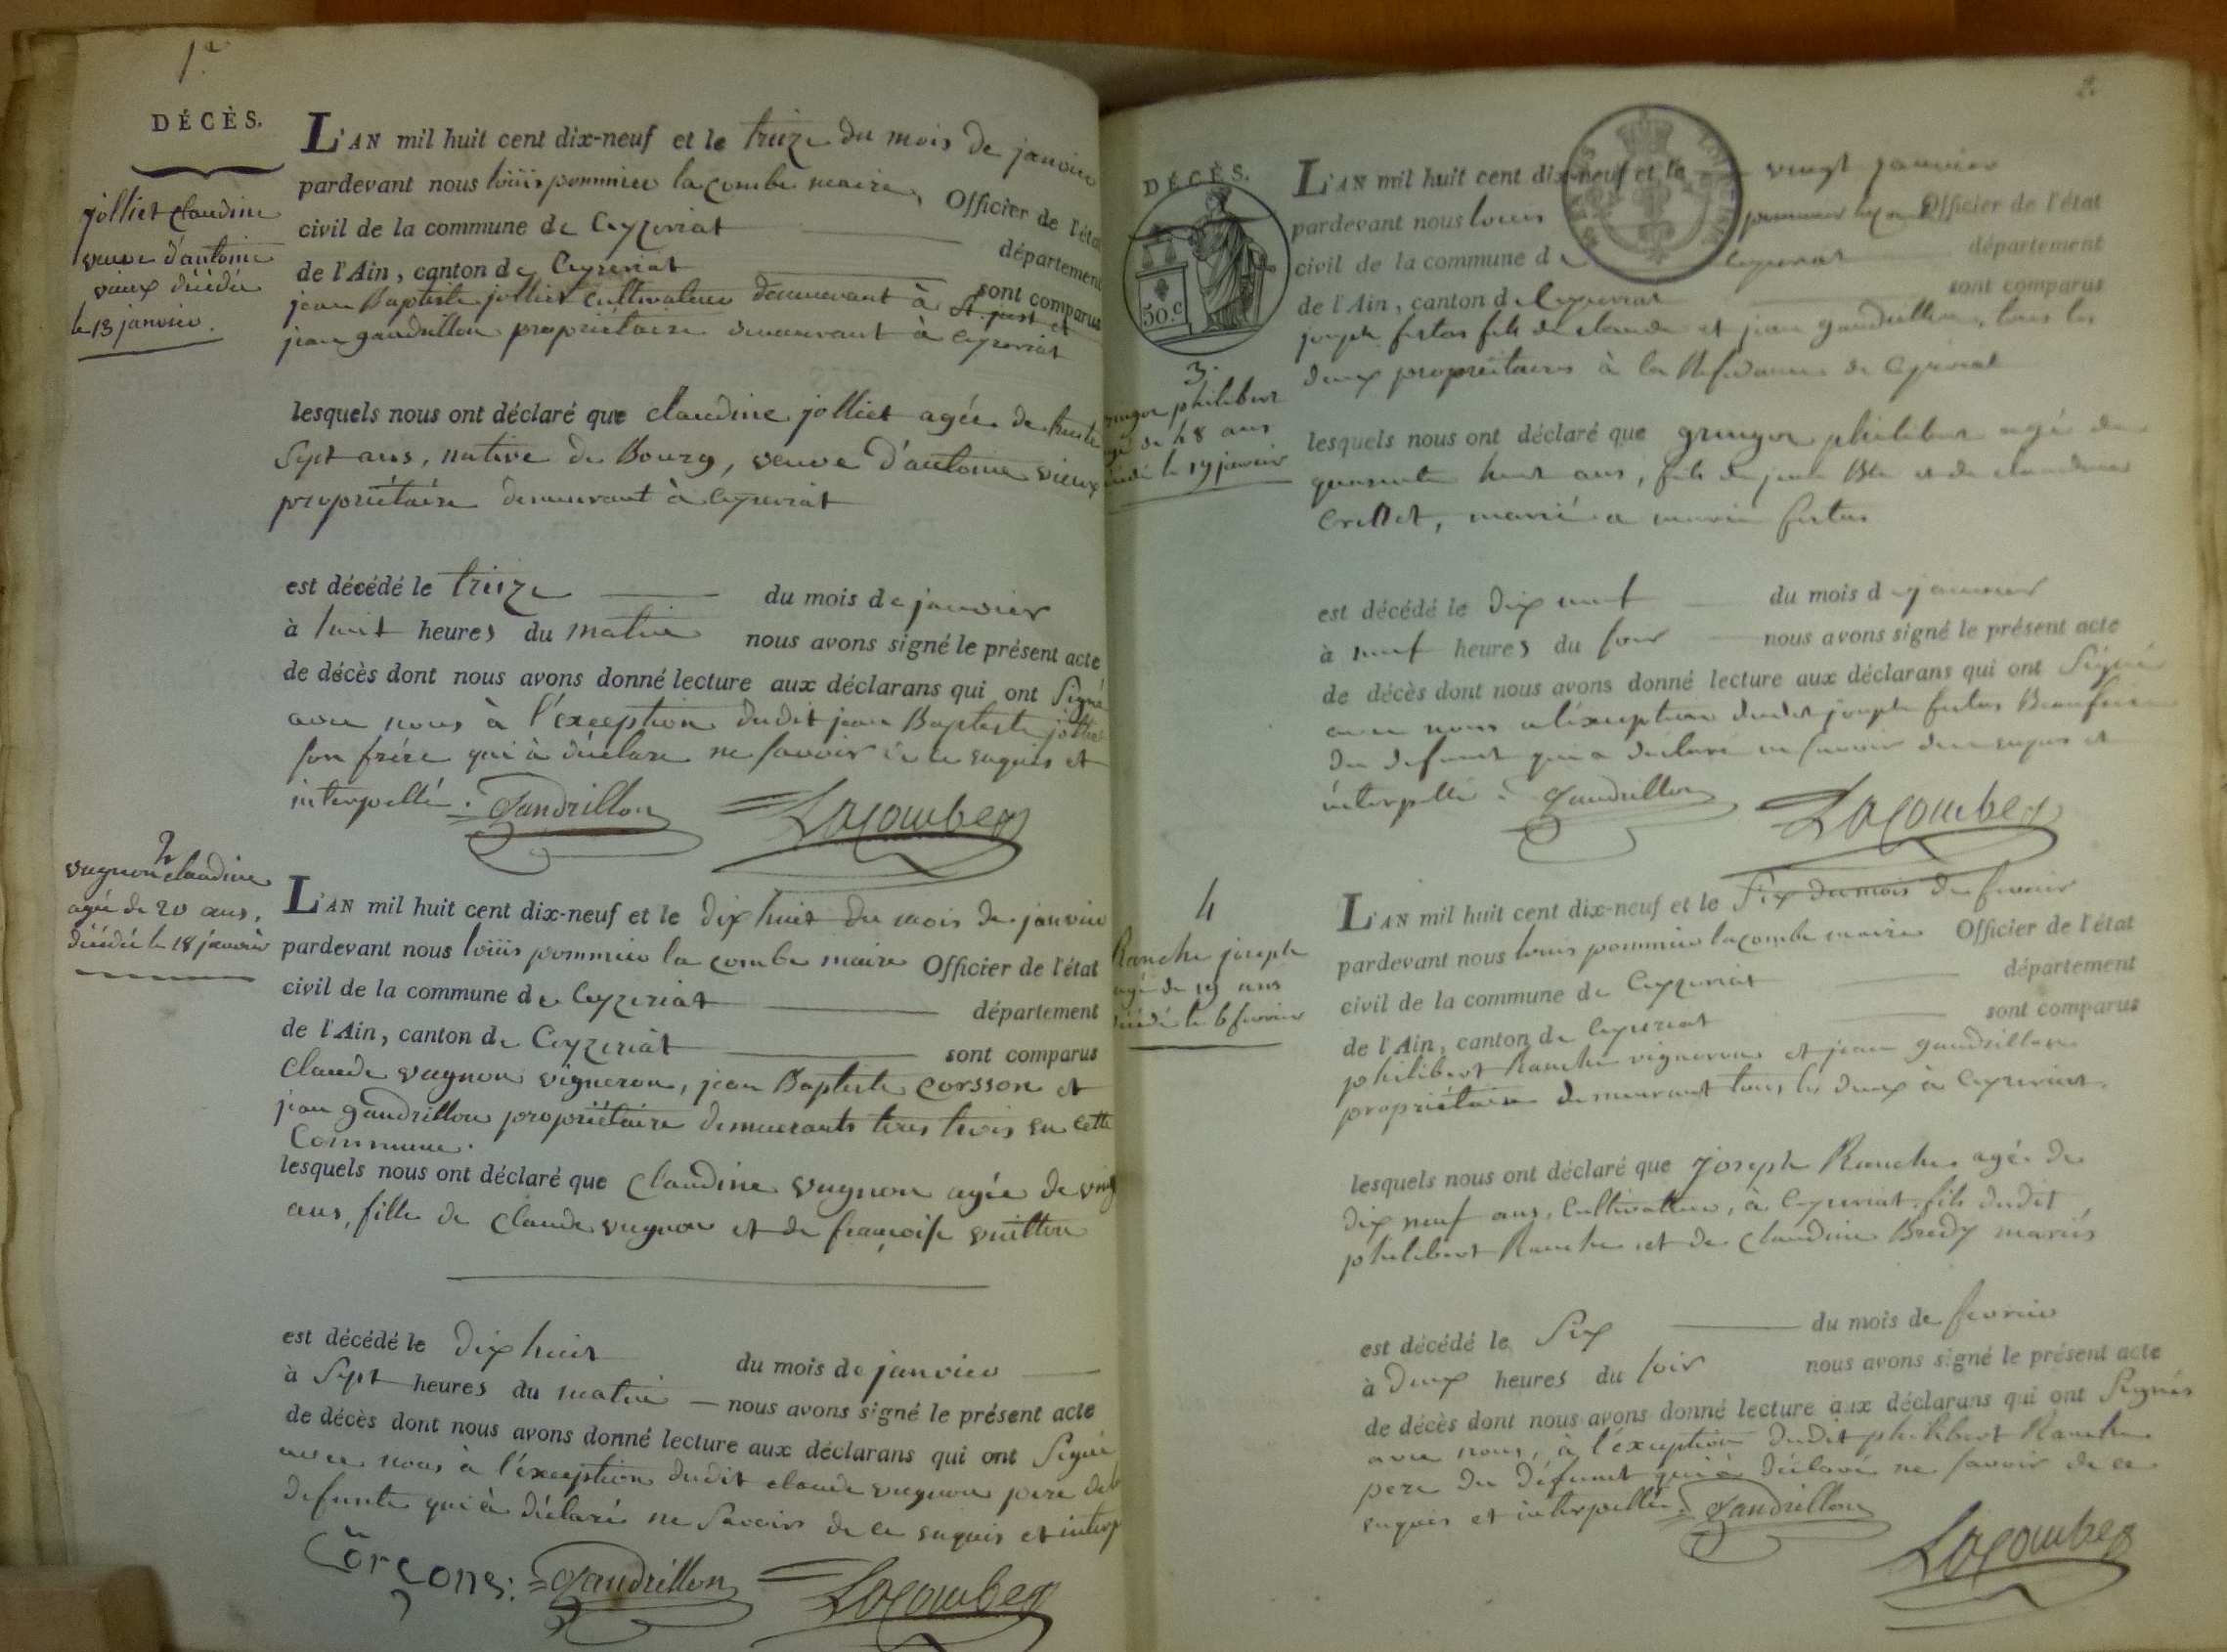 1.er
DÉCÈS.
jolliet claudine
veuve d'antoine
vieux décédée
le 13 janvier.
L'AN mil huit cent dix-neuf et le treize du mois de janvier
pardevant nous loüis pommier lacombe maire, Officier de l'état
civil de la commune de Ceyzeriat département
de l'Ain, canton de Ceyzeriat sont comparus
jean Baptiste jolliet cultivateur demeurant à St. just et
jean gaudrillon propriétaire demeurant à ceyzeriat
lesquels nous ont déclaré que claudine jolliet agée de trente
sept ans, native de Bourg, veuve d'antoine vieux
propriétaire demeurant à ceyzeriat
est décédé le treize du mois de janvier
à huit heures du matin nous avons signé le présent acte
de décès dont nous avons donné lecture aux déclarans qui ont signé
avec nous à l'exception dudit jean Baptiste jolliet
son frére qui à déclare ne savoir de ce enquis et
interpellé. Gaudrillon Lacombe
2
vugnon claudine
agée de 20 ans,
décédée le 18 janvier
L'AN mil huit cent dix-neuf et le dix huit du mois de janvier
pardevant nous loüis pommier la combe maire Officier de l'état
civil de la commune de Ceyzeriat département
de l'Ain, canton de Ceyzeriat sont comparus
Claude vugnon vigneron, jean Baptiste corsson et
jean gaudrillon propriétaire demeurants tous trois en cette
Commune.
lesquels nous ont déclaré que Claudine vugnon agée de vingt
ans, fille de Claude vugnon et de françoise vuitton
est décédé le dix huit du mois de janvier
à sept heures du matin nous avons signé le présent acte
de décès dont nous avons donné lecture aux déclarans qui ont signé
avec nous à l'exception dudit claude vugnon pere de la
defunte qui à déclaré ne savoir de ce enquis et interp
Corçons: Gaudrillon Lacombe
2.
DÉCÈS.
50.c
3.
philibert
de 48 ans
le 19 janvier
L'AN mil huit cent dix-neuf et le vingt janvier
pardevant nous louis pommier lacombe Officier de l'état
civil de la commune de Ceyzeriat département
de l'Ain, canton de Ceyzeriat sont comparus
joseph futas fils de claude et jean gaudrillon, tous les
deux propriétaires à la Residence de Ceyzeriat
lesquels nous ont déclaré que philibert agé de
quarante huit ans, fils de jean Bte et de claudine
marié a marie futas
est décédé le dix neuf du mois de janvier
à neuf heures du soir nous avons signé le présent acte
de décès dont nous avons donné lecture aux déclarans qui ont signé
avec nous a l'exception dudit joseph futas Beaufrere
du defunt qui a déclaré ne savoir de ce enquis et
interpellé. Gaudrillon Lacombe
4
Ranche joseph
agé de 19 ans
décédé le 6 fevrier
L'AN mil huit cent dix-neuf et le six du mois de fevrier
pardevant nous louis pommier lacombe maire Officier de l'état
civil de la commune de Ceyzeriat département
de l'Ain, canton de Ceyzeriat sont comparus
philibert Ranche vigneron et jean gaudrillon
propriétaire demeurant tous les deux à Ceyzeriat.
lesquels nous ont déclaré que joseph Ranche agé de
dix neuf ans, Cultivateur, à Ceyzeriat, fils dudit
philibert Ranche et de Claudine Bredy mariés
est décédé le Six du mois de fevrier
à deux heures du soir nous avons signé le présent acte
de décès dont nous avons donné lecture aux déclarans qui ont Signés
avec nous, à l'exception dudit philibert Ranche
pere du défunt qui à déclaré ne savoir de ce
enquis et interpellé. Gaudrillon
Lacombe